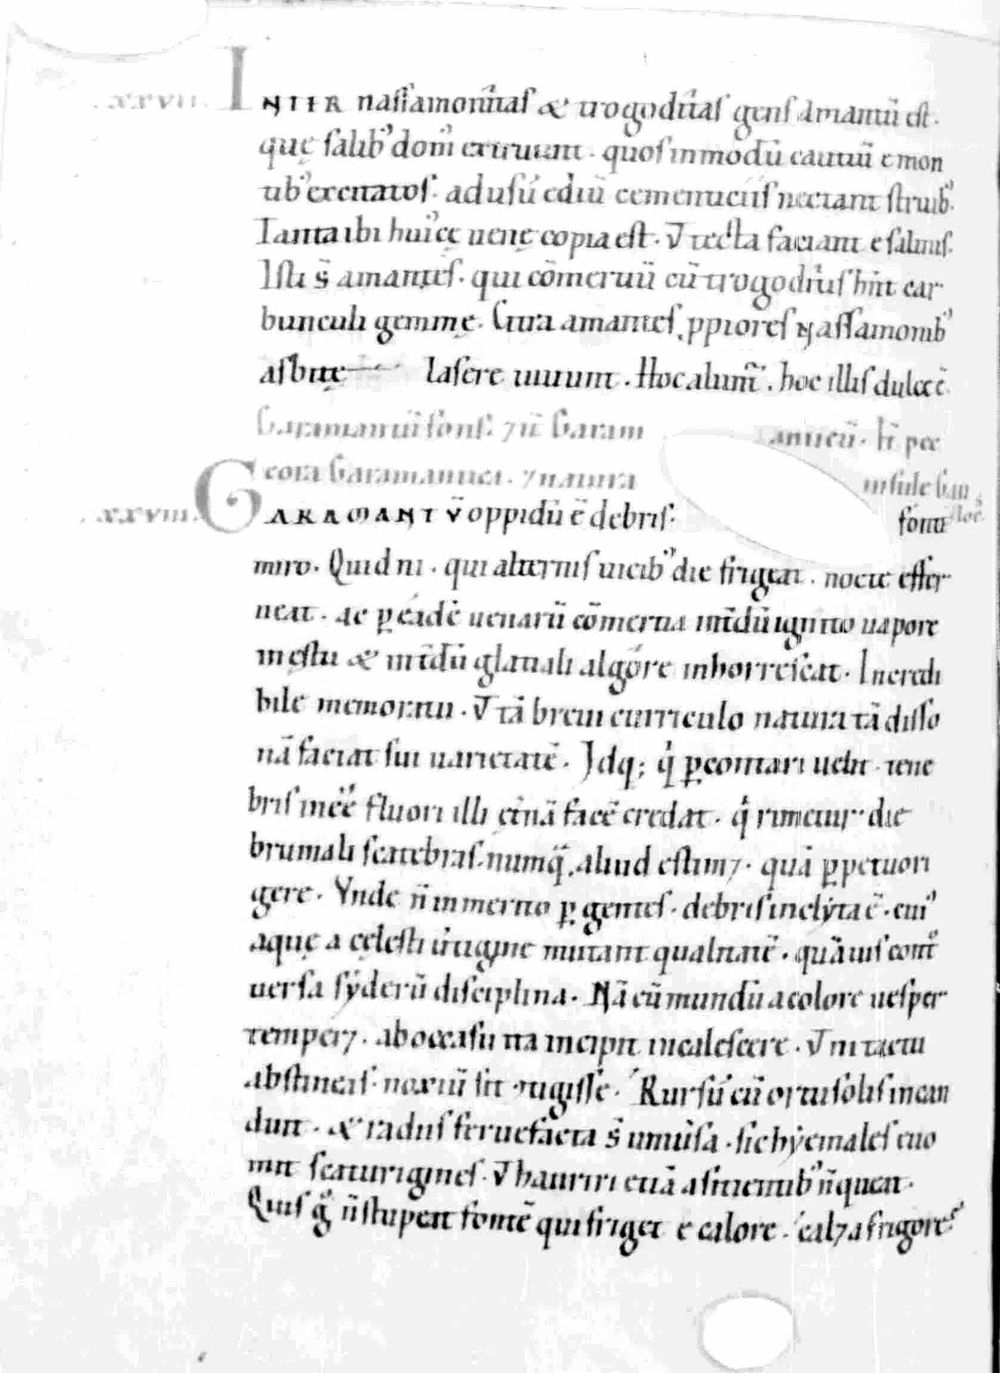 .xxvii. INTER nassamon̄as & trogoditas gens amantū est.
quę salib' dom' extruunt. quos in modū cautiū e mon
tib' excitatos. ad usū ediū cementiciis nectant struib'.
Tanta ibi hui'cę uenę copia est. V tecta faciant e salinis.
Isti s̄ amantes. qui cōmerciū cū trogoditis hn̄t car
bunculi gemmę. Citra amantes ,ppiores nassamonib'
asbitę lasere uiuunt. Hoc alunt̄. hoc illis dulce ē.
Garamantū fons. 7 ū Garam anticū. h̄ pec
cora Garamantici. 7 natura insule Gau
.xxviii. GARAMANTV̄ oppidū ē debris. fonte
miro. Quid ni. qui alternis uicib' die frigeat. nocte effer
ueat. ac p eadē uenarū cōmertia int̄dū ignito uapore
inęstu & int̄dū glatiali algore inhorrescat. Incredi
bile memoratu. V tā breui curriculo natura tā disso
nā faciat sui uarietatē. Idq; q̇ pcontari uelit. tene
bris incē fluori illi et̄nā facē credat. q̇ rimetur die
brumali scatebras. numq̄ aliud estim7. quā ppetuo ri
gere. Vnde n̄ inmerito p gentes. debris inclyta ē. cui'
aquę a cęlesti uertigine mutant qualitatē. quāuis cont̊
uersa syderū disciplina. Nā cū mundū a colore uesper
temper7. ab occasu ita incipit incalescere. V ni tactu
abstineas. noxiū sit tigisse. Rursū cū ortu solis incan
duit. & radiis feruefacta s̄ uniu̇sa. sic hyemales euo
mit scaturigines. V hauriri etiā a sitientib' n̄ queat.
Quis g̊ n̄ stupeat fontē qui friget e calore. cal7 a frigore?